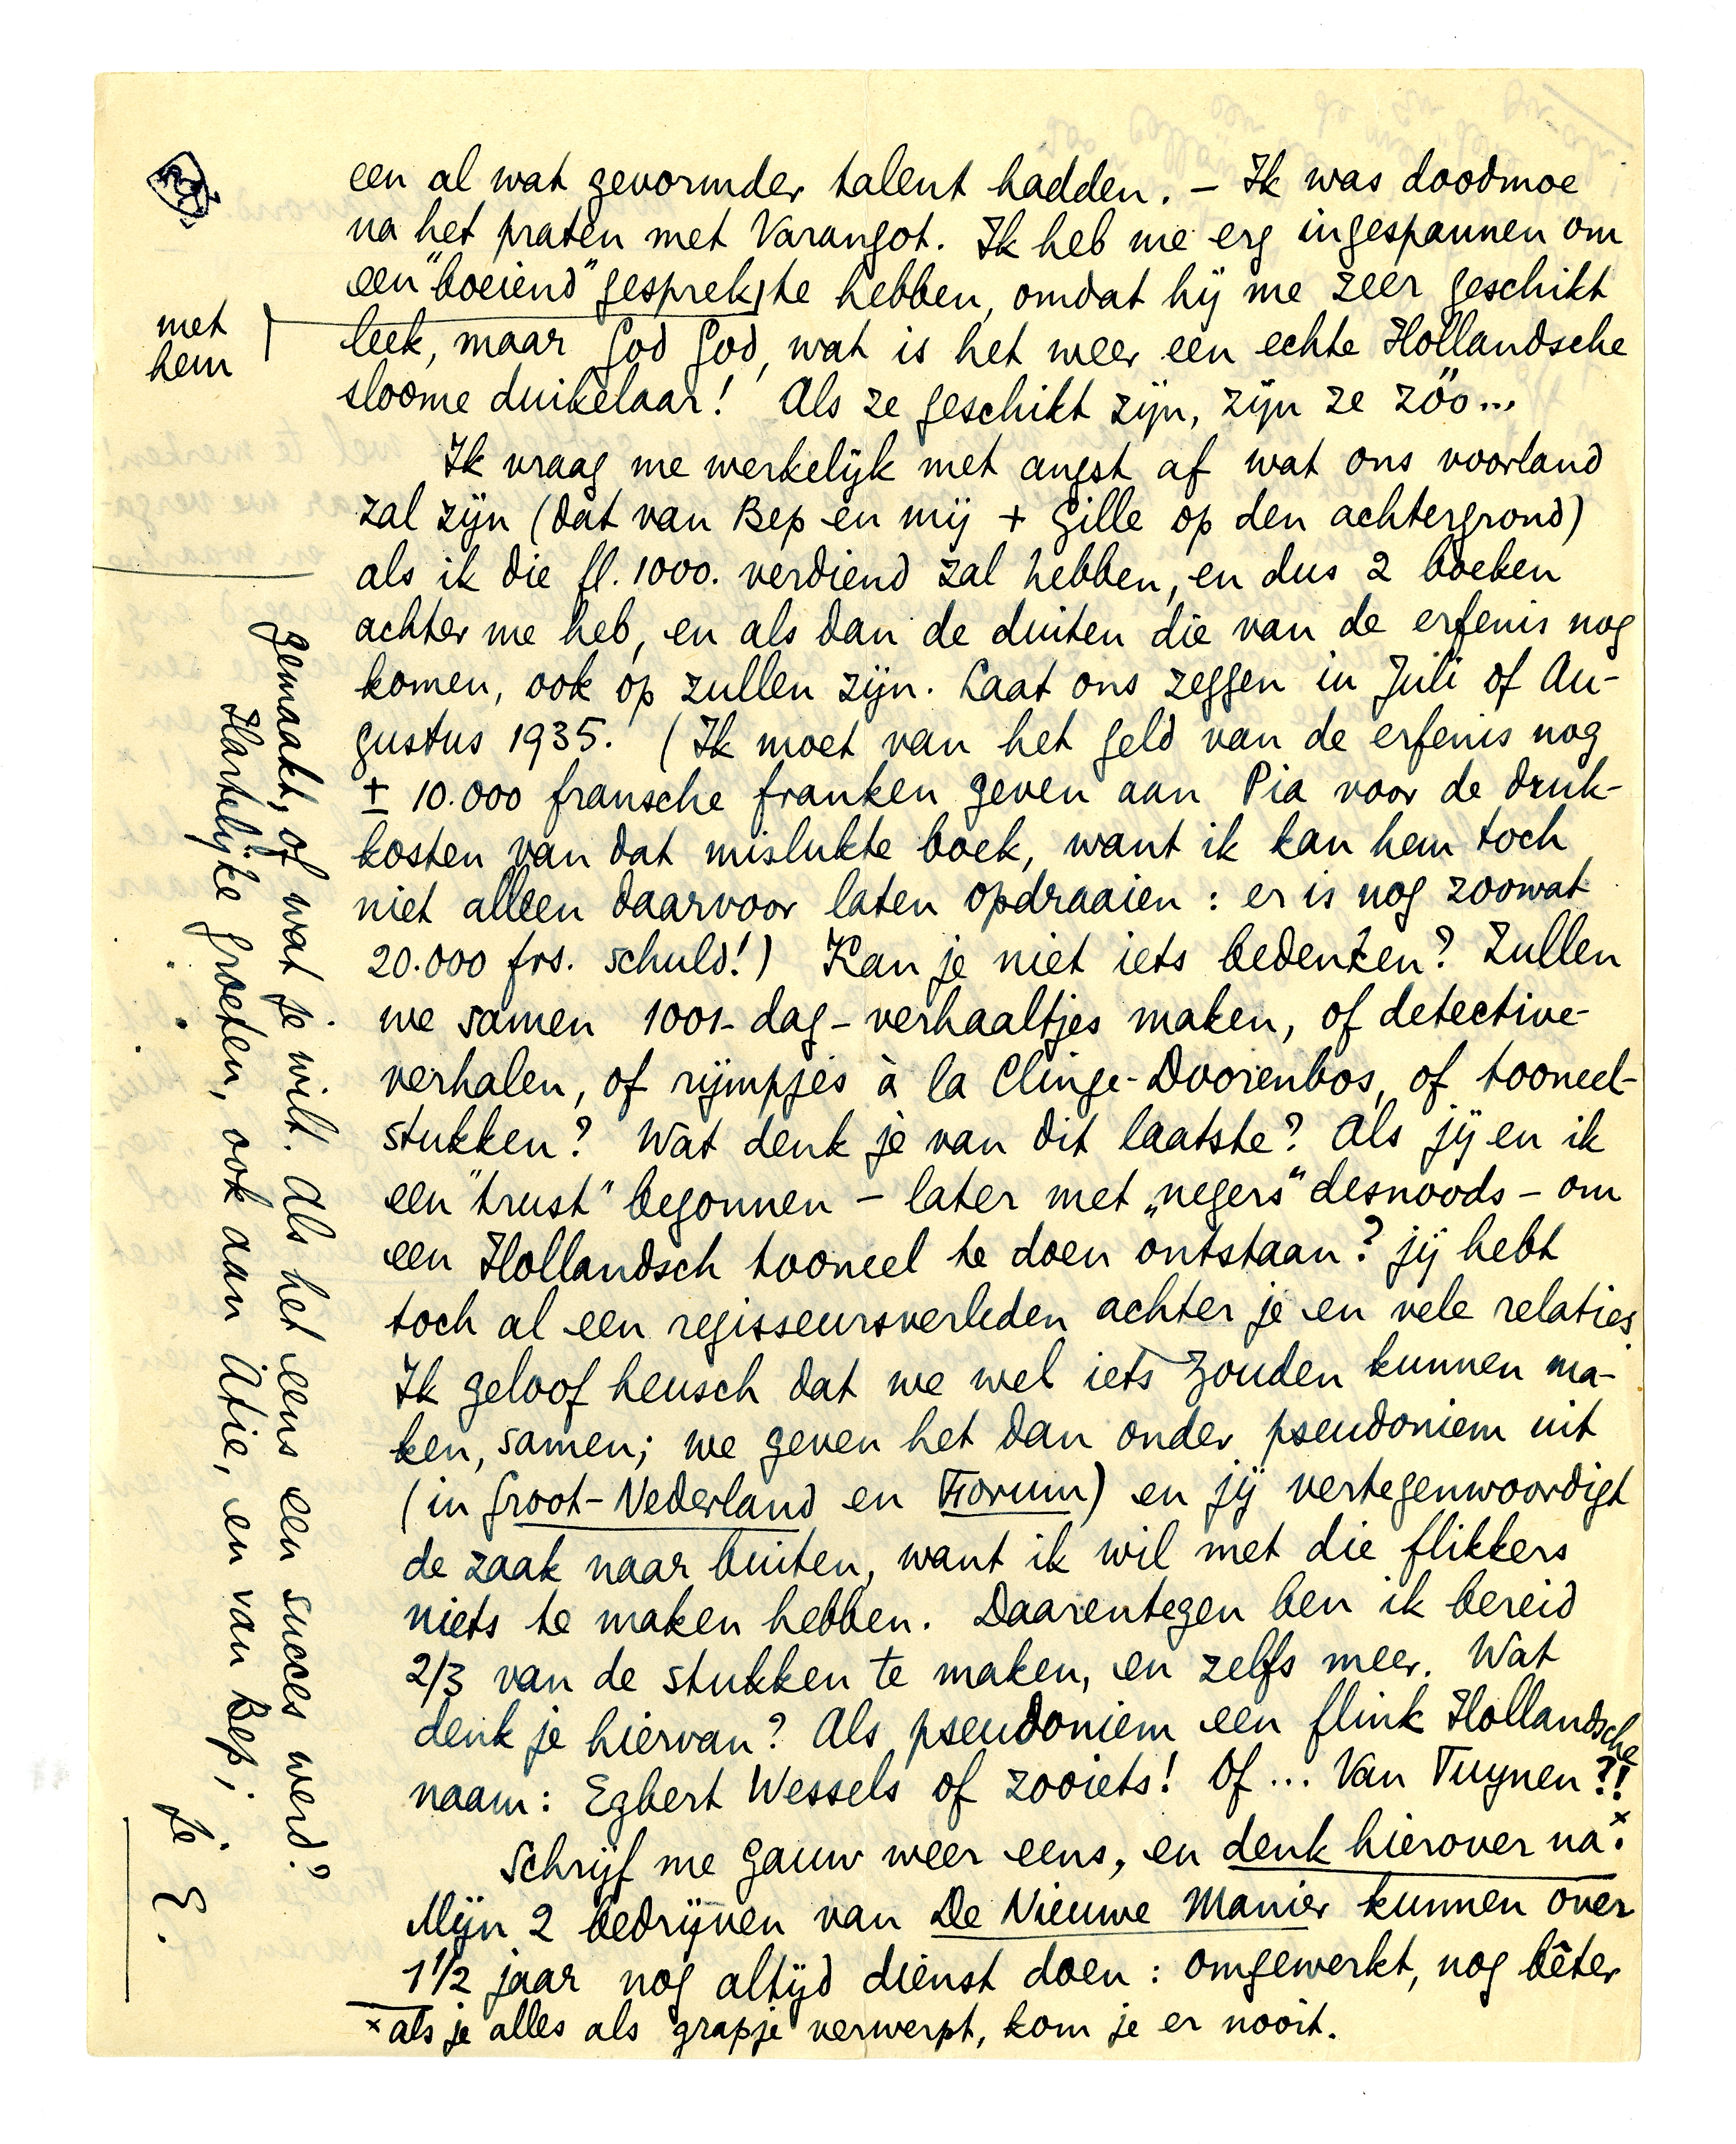 een al wat gevormder talent hadden. – Ik was doodmoe
na het praten met Varangot. Ik heb me erg ingespannen om
een "boeiend" gesprek te hebben, omdat hij me zeer geschikt
met
hem
leek, maar God God, wat is het weer een echte Hollandsche
sloome duikelaar! Als ze geschikt zijn, zijn ze zóó...
Ik vraag me werkelijk met angst af wat ons voorland
zal zijn (dat van Bep en mij + Gille op den achtergrond)
als ik die fl. 1000. verdiend zal hebben, en dus 2 boeken
achter me heb, en als dan de duiten die van de erfenis nog
komen, ook op zullen zijn. Laat ons zeggen in Juli of Au-
gustus 1935. (Ik moet van het geld van de erfenis nog
± 10.000 fransche franken geven aan Pia voor de druk-
kosten van dat mislukte boek, want ik kan hem toch
niet alleen daarvoor laten opdraaien: er is nog zoowat
20.000 frs. schuld!) Kan je niet iets bedenken? Zullen
we samen 1001-dag-verhaaltjes maken, of detective-
verhalen, of rijmpjes à la Clinge-Doorenbos, of tooneel-
stukken? Wat denk je van dit laatste? Als jij en ik
een "trust" begonnen – later met „negers" desnoods – om
een Hollandsch tooneel te doen ontstaan? jij hebt
toch al een regisseursverleden achter je en vele relaties
Ik geloof heusch dat we wel iets zouden kunnen ma-
ken, samen; we geven het dan onder pseudoniem uit
(in Groot-Nederland en Forum) en jij vertegenwoordigt
de zaak naar buiten, want ik wil met die flikkers
niets te maken hebben. Daarentegen ben ik bereid
2/3 van de stukken te maken, en zelfs meer. Wat
denk je hiervan? Als pseudoniem een flink Hollandsche
naam: Egbert Wessels of zooiets! Of... Van Tuynen?!
Schrijf me gauw weer eens, en denk hierover na.×
Mijn 2 bedrijven van De Nieuwe Manier kunnen over
1 1/2 jaar nog altijd dienst doen: omgewerkt, nog bêter
× als je alles als grapje verwerpt, kom je er nooit.
gemaakt, of wat je wilt. Als het eens een succes werd?
Hartelijke groeten, ook aan Atie, en van Bep;
Je E.